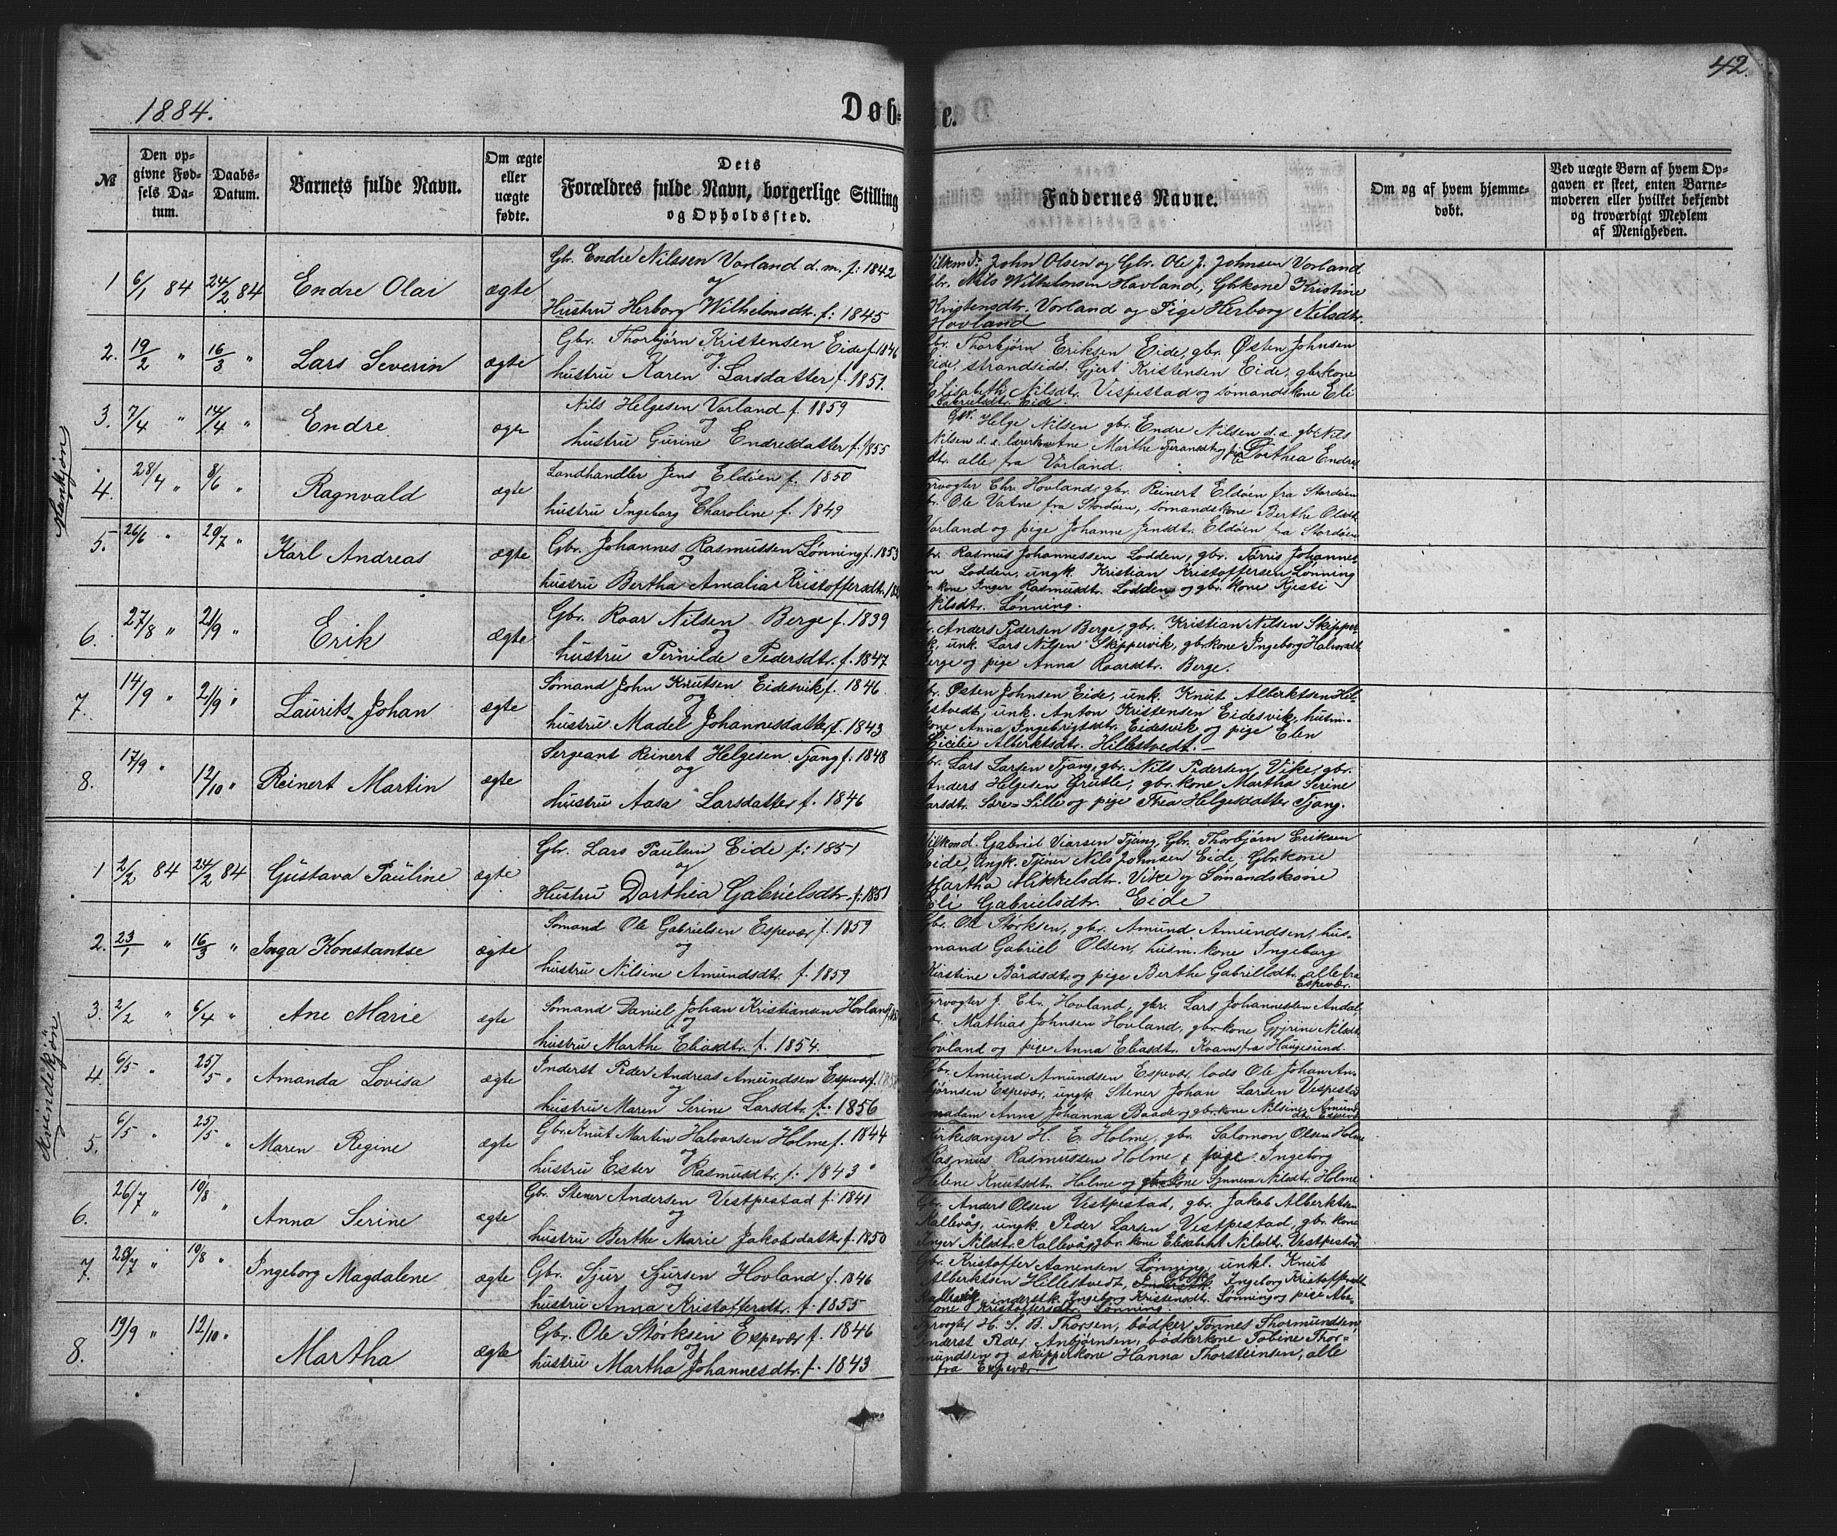 42.
1884.
Døb=
te.
№
Den op-
givne Fød-
sels Da-
tum.
Daabs-
Datum.
Barnets fulde Navn.
Om ægte
eller
uægte
fødte.
Dets
Forældres fulde Navn, borgerlige Stilling
og Opholdssted.
Faddernes Navne.
Om og af hvem hjemme-
døbt.
Ved uægte Børn af hvem Op-
gaven er skeet, enten Barne-
moderen eller hvilket bekjendt
og troværdigt Medlem
af Menigheden.
Mankjøn
1 6/1 84 24/2 84 Endre Olai ægte
Gbr. Endre Nilssen Vorland d. m. f: 1842
og
Hustru Herborg Wilhelmsdtr. f: 1845
John Olsen og Gbr. Ole J. Johnsen Vorland
Nils Wilhelmsen Hovland, Gbkone Kristine
Kristensdtr. Vorland og Pige Herborg Nilsdtr.
Hovland
2. 19/2 " 16/3 " Lars Severin ægte
Gbr. Thorbjørn Kristensen Eide f. 1846
og
hustru Karen Larsdatter f. 1851.
Thorbjørn Eriksen Eide, gbr. Østen Johnsen
Eide, strandsidd. Gjert Kristensen Eide, gbrkone
Elisabeth Nilsdtr. Vespestad og sømandskone Eli
Gabrielsdtr. Eide.
3. 7/4 " 14/4 " Endre ægte
Nils Helgesen Vorland f. 1859
og
hustru Gurine Endredatter f. 1855
Gbr. Helge Nilsen gbr. Endre Nilsen d. æ. gbr. Nils
Nilsen d. æ. Ane Marthe og pige Dorthea Endre
dtr. alle fra Vorland.
4. 28/4 " 8/6 " Ragnvald ægte
Landhandler Jens Eldøen f. 1850
og
hustru Ingeborg Charoline f. 1849
Fyrvogter Chr. Hovland, gbr. Reinert Eldøen fra Stordøen
Ole Vatne fra Stordøen, sømandskone Berthe Olsdtr.
Vorland og pige Johanne Jensdtr. Eldøen fra Stordøen
5. 26/6 " 20/7 " Karl Andreas ægte
Gbr. Johannes Rasmussen Lønning f. 1853
og
hustru Bertha Amalia Kristoffersdtr.
Rasmus Johannessen Lodden, gbr. Tørris Johannes-
sen Lodden, ungk. Kristian Kristoffersen Lønning
kone Inger Rasmusdtr. Lodden og gbr. kone Kjisti
Nilsdtr. Lønning.
6. 27/8 " 21/9 " Erik ægte
Gbr. Roar Nilsen Berge f. 1839
og
hustru Pernilde Pedersdtr. f. 1847
Anders Pedersen Berge, gbr. Kristian Nilsen Skipper-
vik, unk. Lars Nilsen Skippervik, gbrkone Ingeborg Halvorsdtr
Berge og pige Anna Roarsdtr. Berge.
7. 14/9 " 21/9 " Laurits Johan ægte
Sømand John Knutsen Eidesvik f. 1846
og
hustru Madel Johannesdatter f. 1843
Østen Johnsen Eide, unk. Knut Alberktsen Hil-
lestvedt, unk. Anton Kristensen Eidesvik, husm.-
kone Anna Ingebrigtsdtr. Eidesvik og pige Elen
Cicilie Alberktsdtr. Hillestvedt. -
8. 17/9 " 12/10 " Reinert Martin ægte
Sergeant Reinert Helgesen Tjong f. 1848
og
hustru Aasa Larsdatter f. 1846
Lars Larsen Tjong, gbr. Nils Pedersen Vike, gbr.
Anders Helgesen Grutle, gbr. kone Martha Serine
Larsdtr. Søre=Sille og pige Thea Helgesdatter Tjong.
Kvindekjøn
1 2/2 84 24/2 84 Gustava Pauline ægte
Gbr. Lars Paulsen Eide f: 1851
og
Hustru Dorthea Gabrielsdtr. f: 1851
Gabriel Viarsen Tjong, Gbr. Thorbjørn Eriksen
Eide, Ungk. Tjener Nils Johnsen Eide, Gbrkone
Martha Mikkelsdtr. Vike og Sømandskone
Eli Gabrielsdtr. Eide
2. 23/1 " 16/3 " Inga Konstantse ægte
Sømand Ole Gabrielsen Espevær f. 1859
og
hustru Nilsine Amundsdtr. f. 1859
Gbr. Ole Størksen, gbr. Amund Amundsen, hus-
mand Gabriel Olsen, husm. kone Ingeborg
Kirstine Bårdsdtr. og pige Berthe Gabrielsdtr. alle fra
Espevær.
3. 2/2 " 6/4 " Ane Marie ægte
Sømand Daniel Johan Kristiansen Hovland
og
hustru Marthe Eliasdtr. f. 1854.
Fyrvogter J. Chr. Hovland, gbr. Lars Johannesen Andal
Mathias Johnsen Hovland, gbrkone Gyrine Nilsdtr.
Hovland og pige Anna Eliasdtr. Kvam fra Haugesund.
4. 6/5 " 25/5 " Amanda Lovisa ægte
Inderst Peder Andreas Amundsen Espevær
og
hustru Maren Serine Larsdtr. f: 1856
Gbr. Amund Amundsen Espevær, lods Ole Johan An-
bjørnsen Espevær, ungk. Stener Johan Larsen Vespestad
madam Anne Johanna Baade og gbrkone Nilsine Amunds
dtr. Espevær
5. 6/5 " 25/5 " Maren Regine ægte
Gbr. Knut Martin Halvorsen Holme f. 1844
og
hustru Ester Rasmusdtr. f. 1843
Kirkesanger H. E. Holme, gbr. Salomon Olsen Holme
Rasmus Rasmussen Holme, pige Ingeborg
Helene Knutsdtr. Holme og gbrkone Synneva Nilsdtr. Holme
6. 26/7 " 10/8 " Anna Serine ægte
Gbr. Stener Andersen Vestpestad f. 1841
og
hustru Berthe Marie Jakobsdatter f. 1850
Gbr. Anders Olsen Vestpestad, gbr. Jakob Alberktsen
Kallevåg, ungk. Peder Larsen Vestpestad, gbr. kone
Inger Nilsdtr. Kallevåg, gbr. kone Elisabet Nilsdtr. Vestpestad
7. 20/7 " 10/8 " Ingeborg Magdalene ægte
Gbr. Sjur Sjursen Hovland f. 1846
og
hustru Anna Kristoffersdtr. f. 1855
Gbr. Kristoffer Aanensen Lønning, unkl. Knut
Alberktsen Hillestvedt, Ingeborg Kristoffersdtr
inderstk. Ingeborg Kristensdtr. Lønning og pige Abe-
lone Kristoffersdtr. Lønning.
8. 19/9 " 12/10 " Martha ægte
Gbr. Ole Størksen Espevær f. 1846
og
hustru Martha Johannesdtr. f. 1843
Fyrvogter H. S. B. Thorsen, bødker Tønnes Thormundsen
Inderst Peder Anbjørnsen, bødkerkone Tobine Thor=
mundsen og skipperkone Hanna Thorsteinsen, alle
fra Espevær.